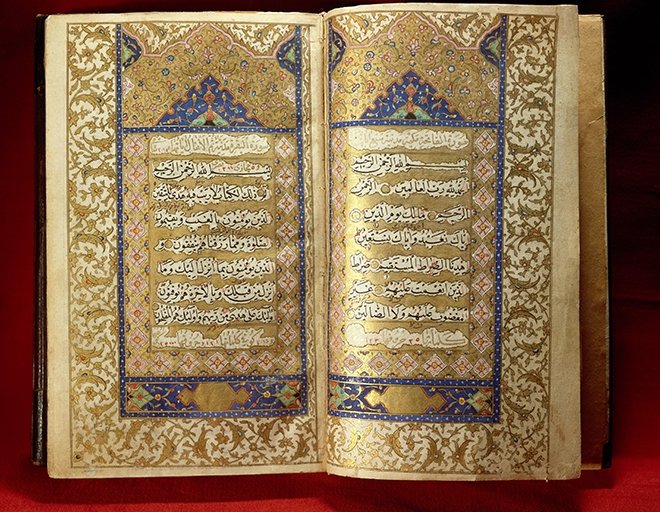 بِسْمِ اللهِ الرَّحْمٰنِ الرَّحِيمِ
الْحَمْدُ لِلّٰهِ رَبِّ الْعَالَمِينَ الرَّحْمٰنِ
الرَّحِيمِ مَالِكِ يَوْمِ الدِّينِ
اِيَّاكَ نَعْبُدُ وَاِيَّاكَ نَسْتَعِينُ
اِهْدِنَا الصِّرَاطَ الْمُسْتَقِيمَ صِرَاطَ
الَّذِينَ اَنْعَمْتَ عَلَيْهِمْ غَيْرِ
الْمَغْضُوبِ عَلَيْهِمْ وَلَا الضَّالِّينَ
بِسْمِ اللهِ الرَّحْمٰنِ الرَّحِيمِ
الم ذٰلِكَ الْكِتَابُ لَا رَيْبَ فِيهِ هُدًى لِلْمُتَّقِينَ
الَّذِينَ يُؤْمِنُونَ بِالْغَيْبِ وَيُقِيمُونَ
الصَّلٰوةَ وَمِمَّا رَزَقْنَاهُمْ يُنْفِقُونَ
وَالَّذِينَ يُؤْمِنُونَ بِمَا اُنْزِلَ اِلَيْكَ وَمَا
اُنْزِلَ مِنْ قَبْلِكَ وَبِالْاٰخِرَةِ هُمْ يُوقِنُونَ
اُولٰئِكَ عَلٰى هُدًى مِنْ رَبِّهِمْ وَاُولٰئِكَ هُمُ الْمُفْلِحُونَ